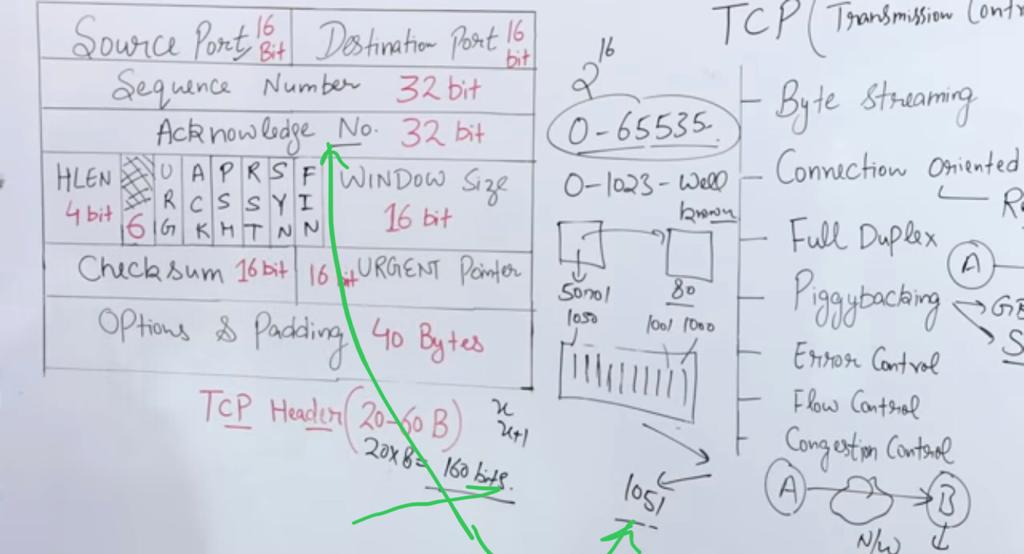 Source Port 16 Bit
Destination Port 16 bit
Sequence Number 32 bit
Acknowledge No. 32 bit
HLEN 4 bit
6
URG
ACK
PSH
RST
SYN
FIN
WINDOW Size 16 bit
Checksum 16 bit
16 bit URGENT Pointer
Options & Padding 40 Bytes
TCP Header (20-60 B)
20x8= 160 bits.
x
x+1
2^16
0-65535.
0-1023-Well
known
50001
80
1050
1001 1000
1051
TCP (Transmission Contr
Byte Streaming
Connection Oriented
Re
Full Duplex
A
Piggybacking
GB
S
Error Control
Flow Control
Congestion Control
A
B
N/W